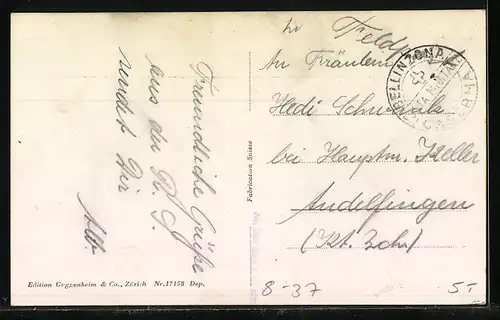 Feldp
An Fräulein
Hedi Schwank
bei Hauptm. Keller
Andelfingen
(Kt. Zch)
Freundliche Grüsse
aus dem
sendet Dir
BELLINZONA
Fabrication Suisse
Edition Guggenheim & Co., Zürich Nr. 17158 Dep.
8-37
5-